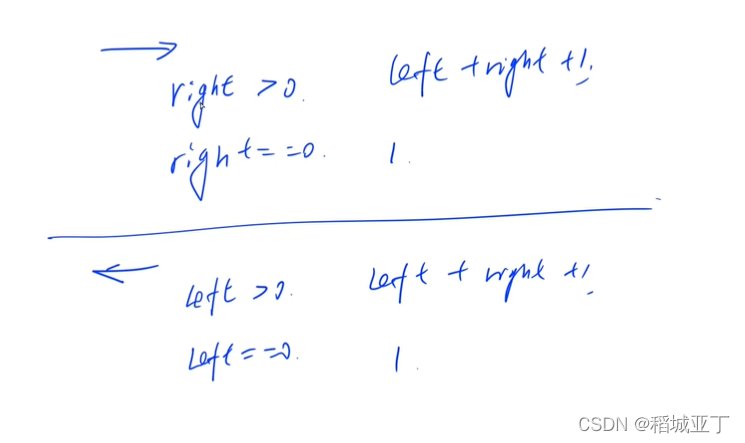 right >0. left +right +1.
right ==0. 1.
left >0. left + right +1.
left ==0. 1.
CSDN @稻城亚丁